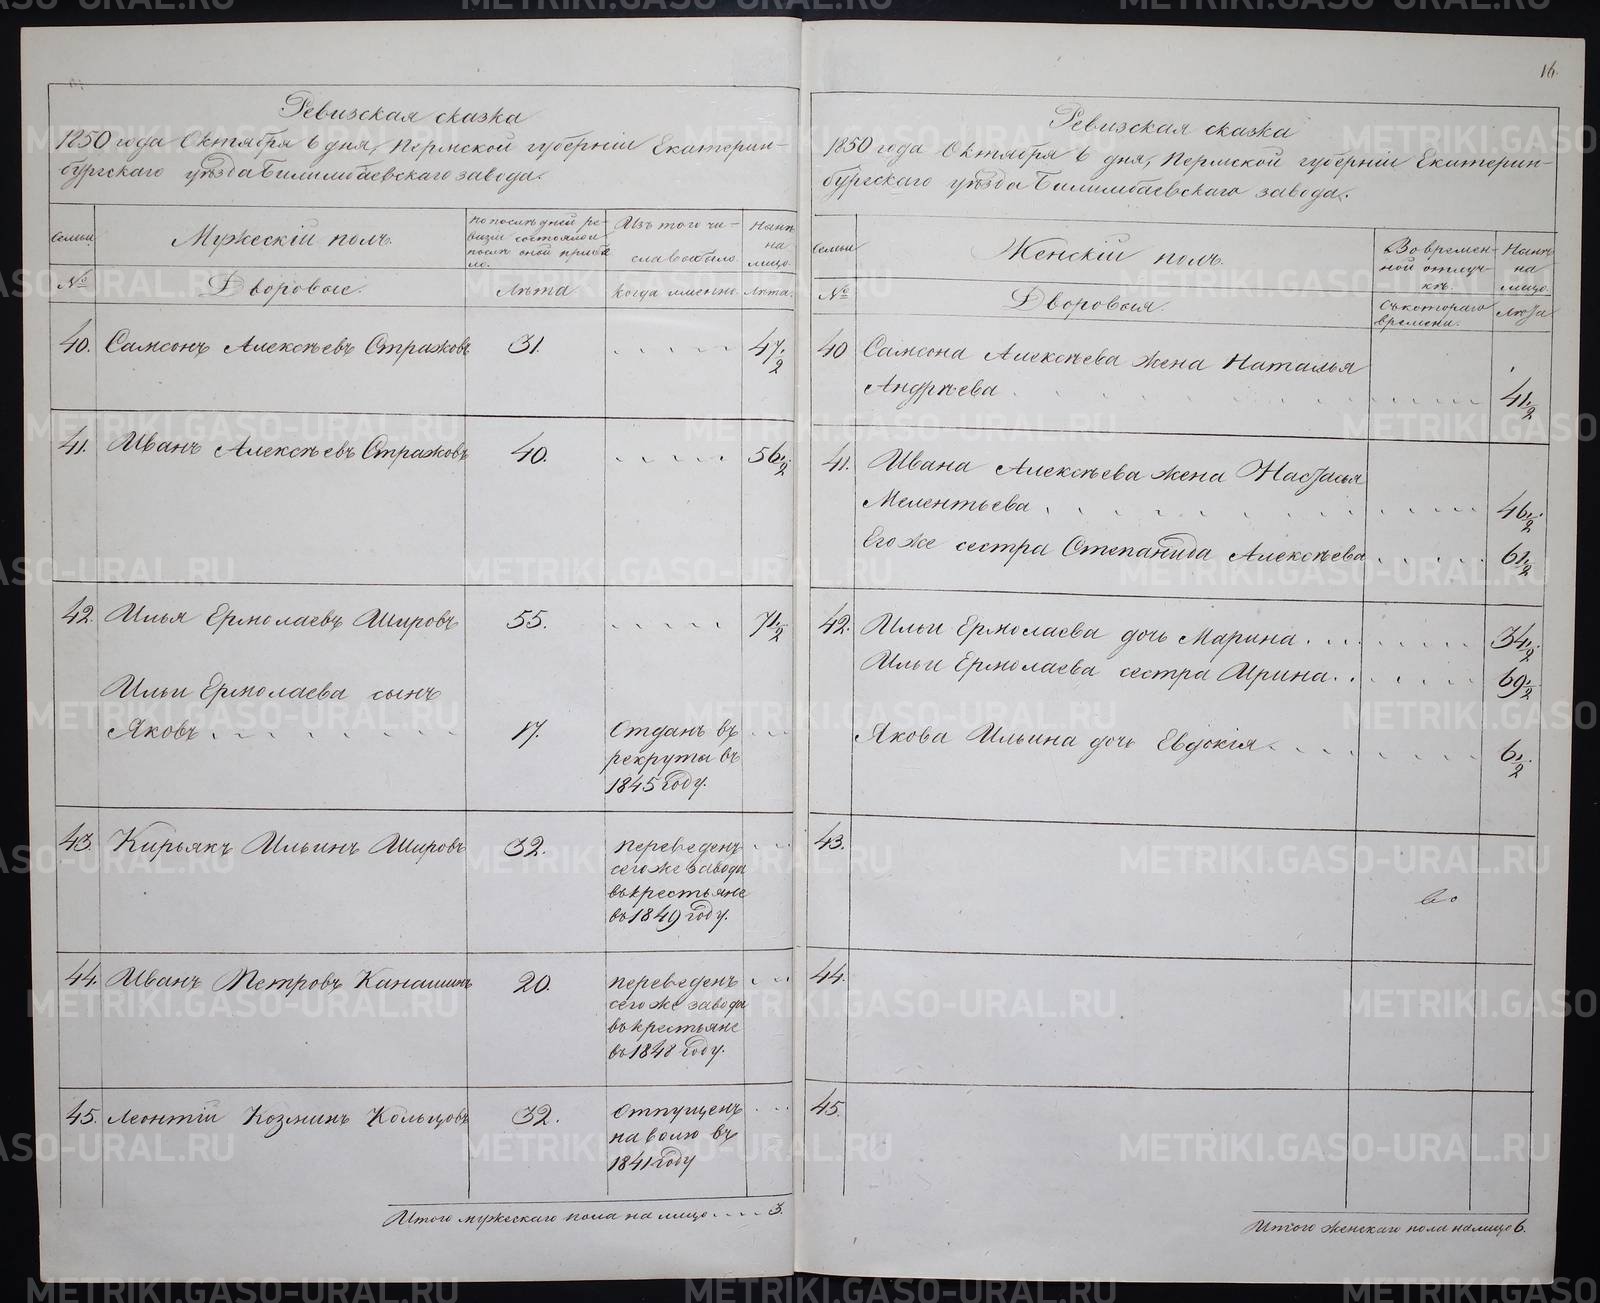 16.
Ревизская сказка
1850 года Октября 6 дня, Пермской губернiи Екатерин-
бургскаго уѣзда Билимбаевскаго завода.
Семьи
Мужескiй полъ.
По послѣдней ре-
визiи состояло и
послѣ оной прибы-
ло.
Изъ того чи-
сла выбыло
Нынѣ
на
лицо.
№
Дворовые.
Лѣта
Когда именно.
Лѣта.
40. Самсонъ Алексѣевъ Стражовъ 31. 47 1/2
41. Иванъ Алексѣевъ Стражовъ 40. 56 1/2
42. Илья Ермолаевъ Шировъ 55. 71 1/2
Ильи Ермолаева сынъ
Яковъ 17. Отданъ въ
рекруты въ
1845 году.
43. Кирьякъ Ильинъ Шировъ 32. переведенъ
сего же завода
въ крестьяне
въ 1849 году.
44. Иванъ Петровъ Канашинъ 20. переведенъ
сего же завода
въ крестьяне
въ 1848 году.
45. Леонтiй Козминъ Кольцовъ 32. Отпущенъ
на волю въ
1841 году
Итого мужескаго пола на лицо 3.
Ревизская сказка
1850 года Октября 6 дня, Пермской губернiи Екатерин-
бургскаго уѣзда Билимбаевскаго завода.
Семьи
Женскiй полъ.
Во времен-
ной отлуч-
кѣ.
Нынѣ
на
лицо.
№
Дворовыя.
Съ котораго
времени.
Лѣта
40 Самсона Алексѣева жена Наталья
Андрѣева 41 1/2
41. Ивана Алексѣева жена Настасья
Мелентьева 46 1/2
Его же сестра Степанида Алексѣева 61 1/2
42. Ильи Ермолаева дочь Марина 34 1/2
Ильи Ермолаева сестра Ирина 69 1/2
Якова Ильина дочь Евдокiя 6 1/2
43.
44.
45.
Итого женскаго пола на лицо 6.
METRIKI.GASO-URAL.RU